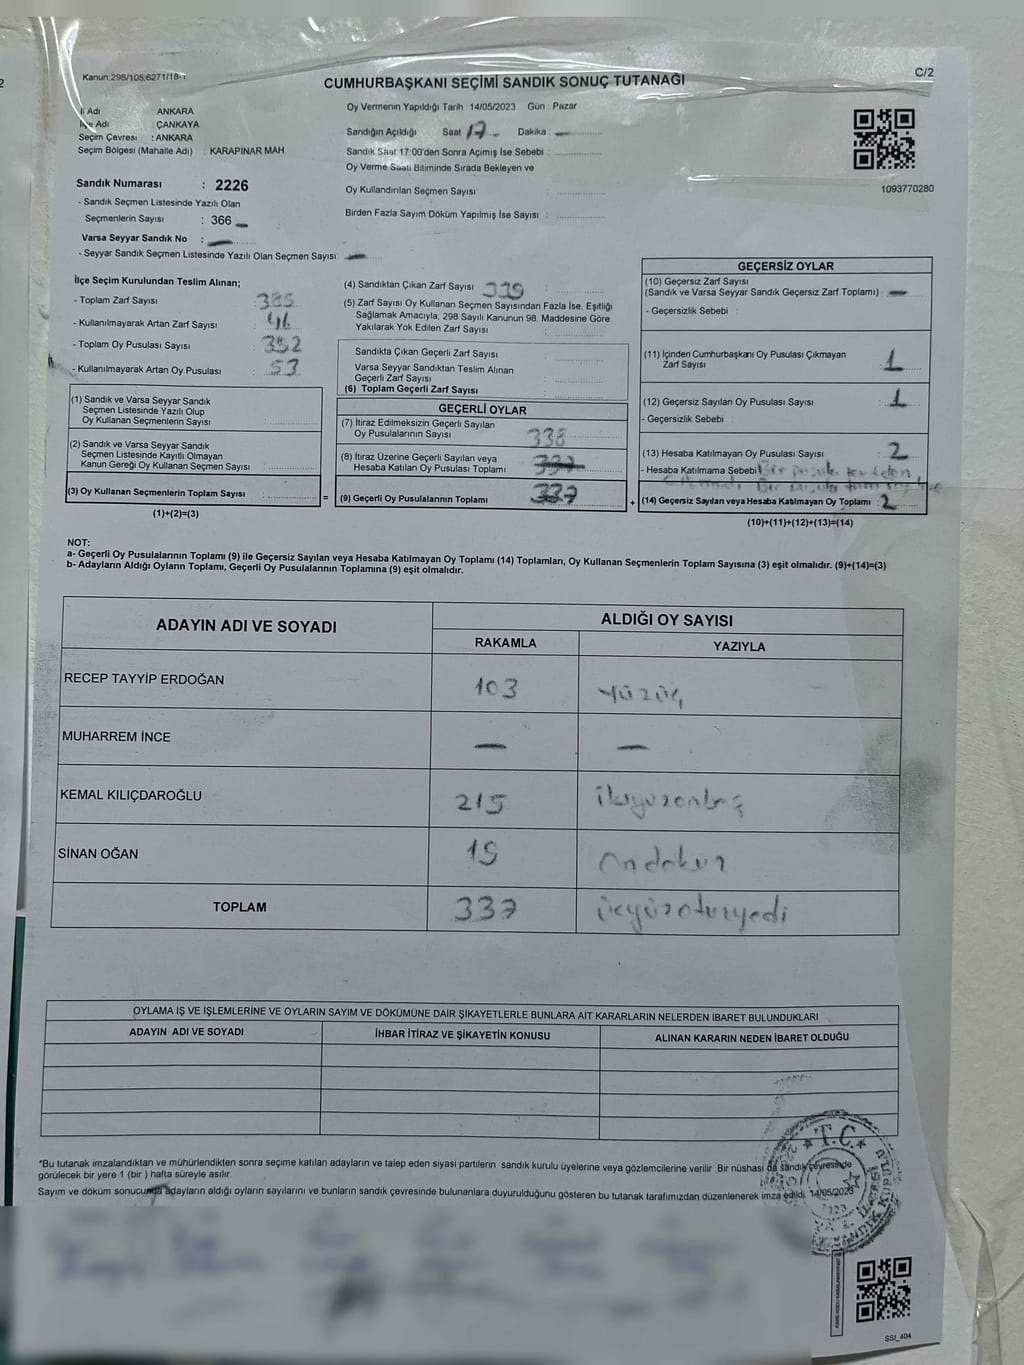 Kanun:298/105,6271/18-1
C/2
CUMHURBAŞKANI SEÇİMİ SANDIK SONUÇ TUTANAĞI
İl Adı ANKARA
İlçe Adı : ÇANKAYA
Seçim Çevresi : ANKARA
Seçim Bölgesi (Mahalle Adı) : KARAPINAR MAH.
Sandık Numarası : 2226
- Sandık Seçmen Listesinde Yazılı Olan
Seçmenlerin Sayısı : 366 –
Varsa Seyyar Sandık No : –
- Seyyar Sandık Seçmen Listesinde Yazılı Olan Seçmen Sayısı –
Oy Vermenin Yapıldığı Tarih 14/05/2023 Gün : Pazar
Sandığın Açıldığı Saat 17 Dakika : –
Sandık Saat 17:00'den Sonra Açılmış İse Sebebi :
Oy Verme Saati Bitiminde Sırada Bekleyen ve
Oy Kullandırılan Seçmen Sayısı :
Birden Fazla Sayım Döküm Yapılmış İse Sayısı :
1093770280
İlçe Seçim Kurulundan Teslim Alınan;
- Toplam Zarf Sayısı : 385
- Kullanılmayarak Artan Zarf Sayısı : 46
- Toplam Oy Pusulası Sayısı : 392
- Kullanılmayarak Artan Oy Pusulası : 53
(1) Sandık ve Varsa Seyyar Sandık
Seçmen Listesinde Yazılı Olup
Oy Kullanan Seçmenlerin Sayısı :
(2) Sandık ve Varsa Seyyar Sandık
Seçmen Listesinde Kayıtlı Olmayan
Kanun Gereği Oy Kullanan Seçmen Sayısı :
(3) Oy Kullanan Seçmenlerin Toplam Sayısı : =
(1)+(2)=(3)
(4) Sandıktan Çıkan Zarf Sayısı : 339
(5) Zarf Sayısı Oy Kullanan Seçmen Sayısından Fazla İse, Eşitliği
Sağlamak Amacıyla; 298 Sayılı Kanunun 98. Maddesine Göre
Yakılarak Yok Edilen Zarf Sayısı :
Sandıkta Çıkan Geçerli Zarf Sayısı :
Varsa Seyyar Sandıktan Teslim Alınan
Geçerli Zarf Sayısı :
(6) Toplam Geçerli Zarf Sayısı :
GEÇERLİ OYLAR
(7) İtiraz Edilmeksizin Geçerli Sayılan
Oy Pusulalarının Sayısı : 338
(8) İtiraz Üzerine Geçerli Sayılan veya
Hesaba Katılan Oy Pusulası Toplamı : 337
(9) Geçerli Oy Pusulalarının Toplamı : 337 +
GEÇERSİZ OYLAR
(10) Geçersiz Zarf Sayısı
(Sandık ve Varsa Seyyar Sandık Geçersiz Zarf Toplamı) : –
- Geçersizlik Sebebi :
(11) İçinden Cumhurbaşkanı Oy Pusulası Çıkmayan
Zarf Sayısı : 1
(12) Geçersiz Sayılan Oy Pusulası Sayısı : 1
- Geçersizlik Sebebi :
(13) Hesaba Katılmayan Oy Pusulası Sayısı : 2
- Hesaba Katılmama Sebebi Bir pusula
(14) Geçersiz Sayılan veya Hesaba Katılmayan Oy Toplamı : 2
(10)+(11)+(12)+(13)=(14)
NOT:
a- Geçerli Oy Pusulalarının Toplamı (9) ile Geçersiz Sayılan veya Hesaba Katılmayan Oy Toplamı (14) Toplamları, Oy Kullanan Seçmenlerin Toplam Sayısına (3) eşit olmalıdır. (9)+(14)=(3)
b- Adayların Aldığı Oyların Toplamı, Geçerli Oy Pusulalarının Toplamına (9) eşit olmalıdır.
ADAYIN ADI VE SOYADI
ALDIĞI OY SAYISI
RAKAMLA YAZIYLA
RECEP TAYYİP ERDOĞAN 103 yüzüç
MUHARREM İNCE – –
KEMAL KILIÇDAROĞLU 215 ikiyüzonbeş
SİNAN OĞAN 19 ondokuz
TOPLAM 337 üçyüzotuzyedi
OYLAMA İŞ VE İŞLEMLERİNE VE OYLARIN SAYIM VE DÖKÜMÜNE DAİR ŞİKAYETLERLE BUNLARA AİT KARARLARIN NELERDEN İBARET BULUNDUKLARI
ADAYIN ADI VE SOYADI İHBAR İTİRAZ VE ŞİKAYETİN KONUSU ALINAN KARARIN NEDEN İBARET OLDUĞU
*Bu tutanak imzalandıktan ve mühürlendikten sonra seçime katılan adayların ve talep eden siyasi partilerin sandık kurulu üyelerine veya gözlemcilerine verilir. Bir nüshası da sandık çevresinde
görülecek bir yere 1 (bir) hafta süreyle asılır.
Sayım ve döküm sonucunda adayların aldığı oyların sayılarını ve bunların sandık çevresinde bulunanlara duyurulduğunu gösteren bu tutanak tarafımızdan düzenlenerek imza edildi. 14/05/2023
T.C.
SANDIK KURULU
SSI_404